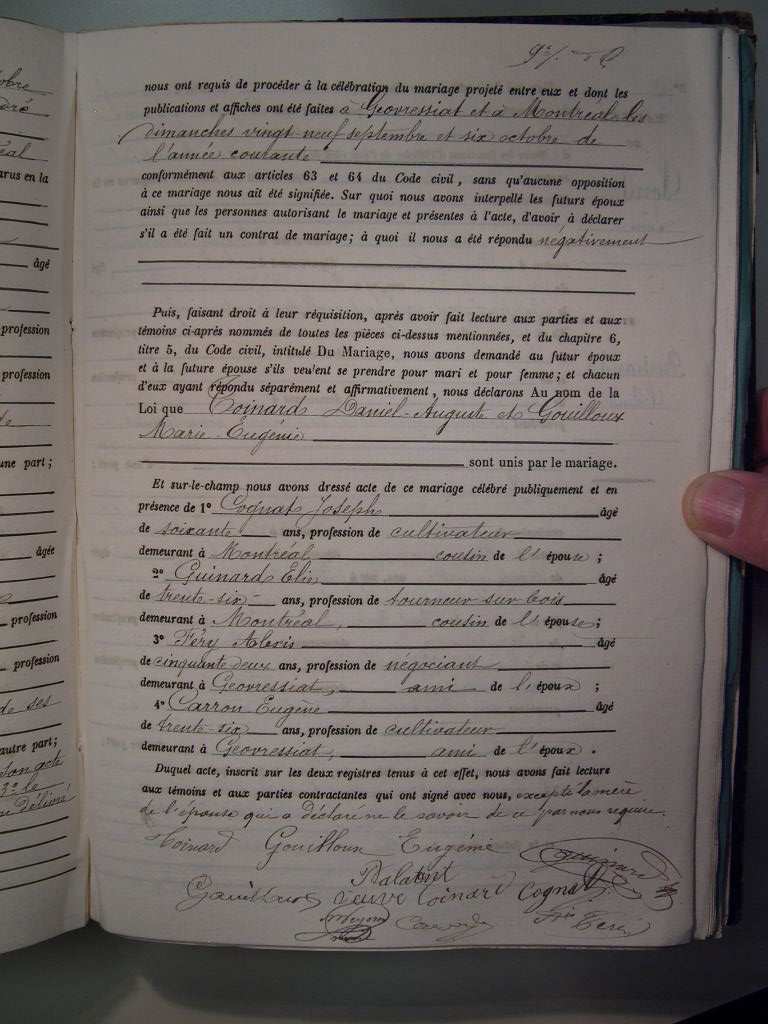 nous ont requis de procéder à la célébration du mariage projeté entre eux et dont les
publications et affiches ont été faites à Géovressiat et à Montréal les
dimanches vingt-neuf septembre et six octobre de
l'année courante
conformément aux articles 63 et 64 du Code civil, sans qu'aucune opposition
à ce mariage nous ait été signifiée. Sur quoi nous avons interpellé les futurs époux
ainsi que les personnes autorisant le mariage et présentes à l'acte, d'avoir à déclarer
s'il a été fait un contrat de mariage; à quoi il nous a été répondu négativement
Puis, faisant droit à leur réquisition, après avoir fait lecture aux parties et aux
témoins ci-après nommés de toutes les pièces ci-dessus mentionnées, et du chapitre 6,
titre 5, du Code civil, intitulé Du Mariage, nous avons demandé au futur époux
et à la future épouse s'ils veulent se prendre pour mari et pour femme; et chacun
d'eux ayant répondu séparément et affirmativement, nous déclarons Au nom de la
Loi que Coinard Daniel-Auguste et Gouilloux
Marie Eugénie
sont unis par le mariage.
Et sur-le-champ nous avons dressé acte de ce mariage célébré publiquement et en
présence de 1° Cognat Joseph âgé
de soixante ans, profession de cultivateur
demeurant à Montréal cousin de l'épouse;
2° Guinard Elie âgé
de trente-six ans, profession de tourneur sur bois
demeurant à Montréal, cousin de l'épouse;
3° Féry Alexis âgé
de cinquante deux ans, profession de négociant
demeurant à Géovressiat, ami de l'époux;
4° Carron Eugène âgé
de trente-six ans, profession de cultivateur
demeurant à Géovressiat, ami de l'époux.
Duquel acte, inscrit sur les deux registres tenus à cet effet, nous avons fait lecture
aux témoins et aux parties contractantes qui ont signé avec nous, excepté la mère
de l'épouse qui a déclaré ne le savoir de ce par nous requise.
Coinard Gouilloux Eugénie Guinard
Gouilloux veuve Coinard Cognat